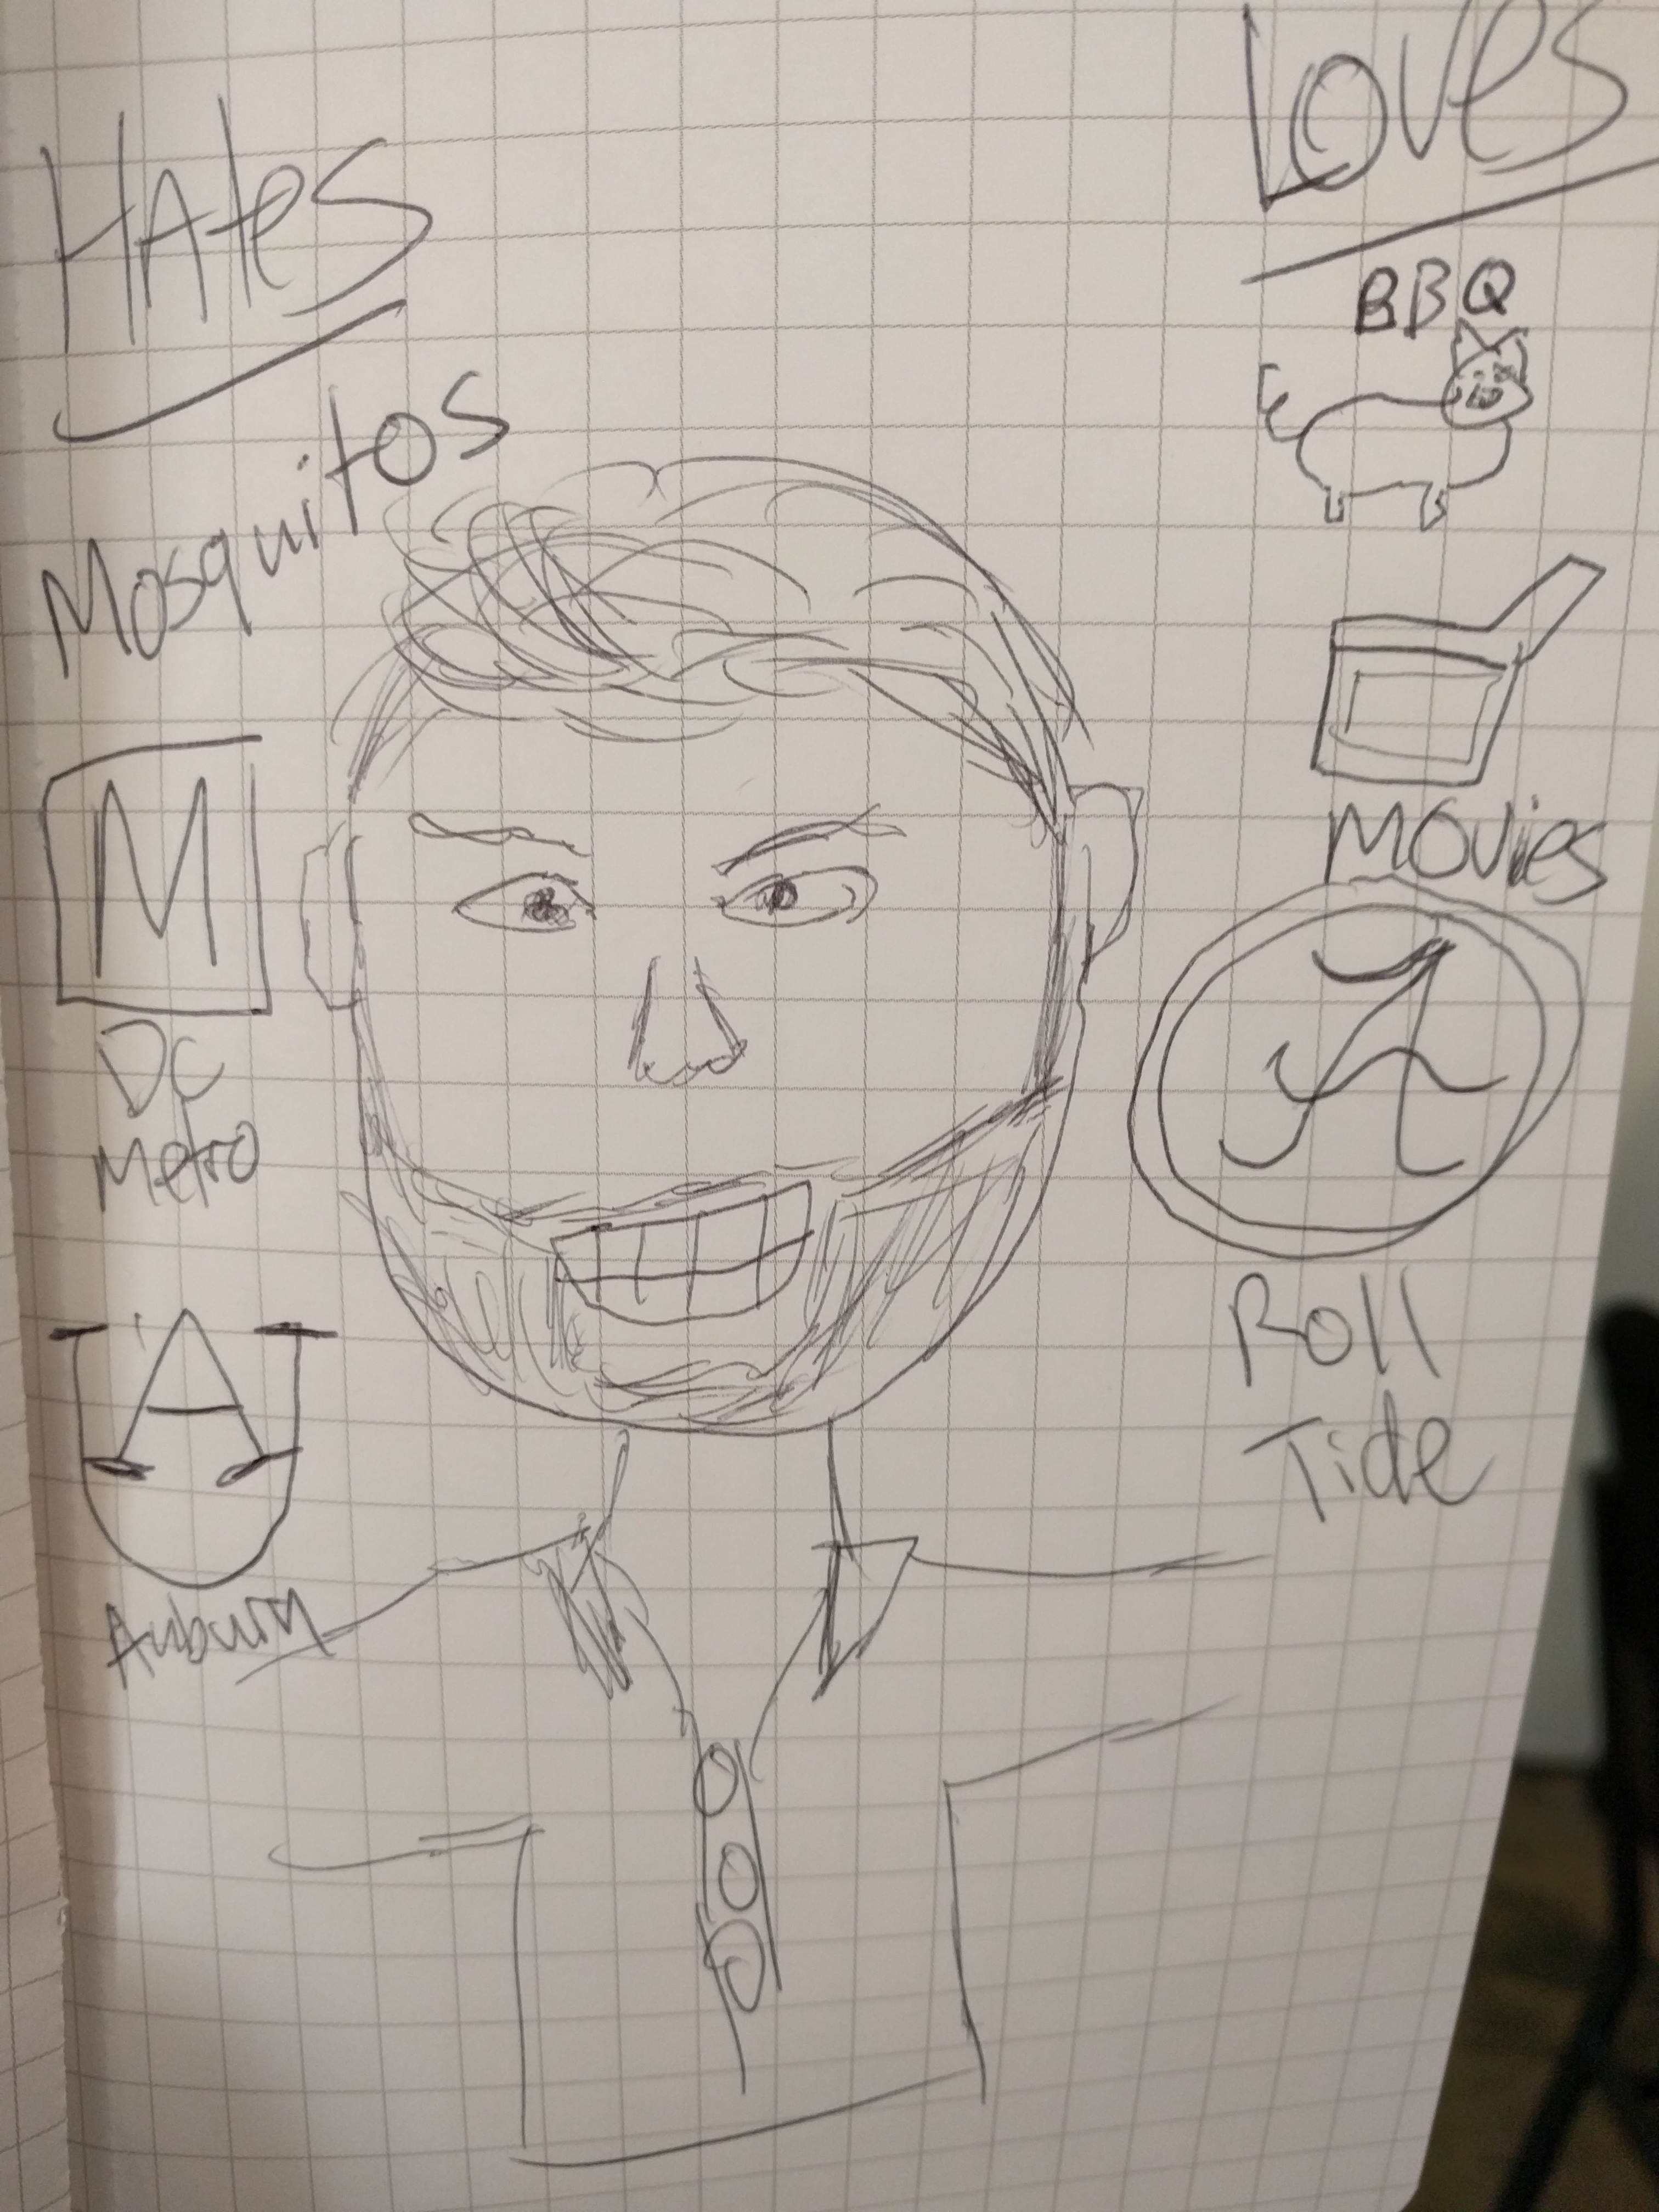 HAtes
Mosquitos
M
DC
Metro
AU
Auburn
LOVES
BBQ
MOVies
A
Roll
Tide